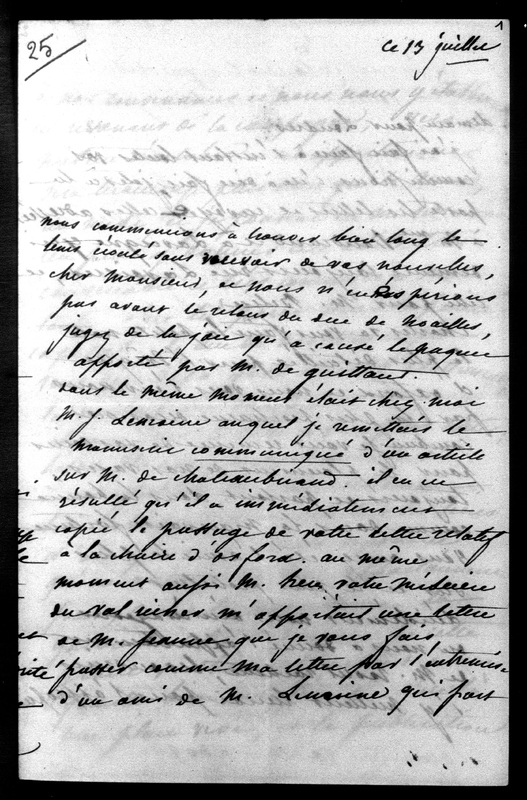 1
25
ce 13 juillet
nous commencions à trouver bien long le
tems écoulé sans recevoir de vos nouvelles,
cher Monsieur, et nous n'en espérions
pas avant le retour du duc de Noailles,
jugez de la joie qu'a causé le paquet
apporté par M. de
dans le même moment était chez moi
M. J. Lemoine auquel je remettais le
manuscrit communiqué d'un article
sur M. de chateaubriand. il en est
résulté qu'il a immédiatement
copié le passage de votre lettre relatif
à la chaire d'oxford. au même
moment aussi M. votre médecin
du val richer m'apportait une lettre
de M. Jeanne que je vous fais
passer comme ma lettre par l'entremise
d'un ami de M. Lemoine qui part